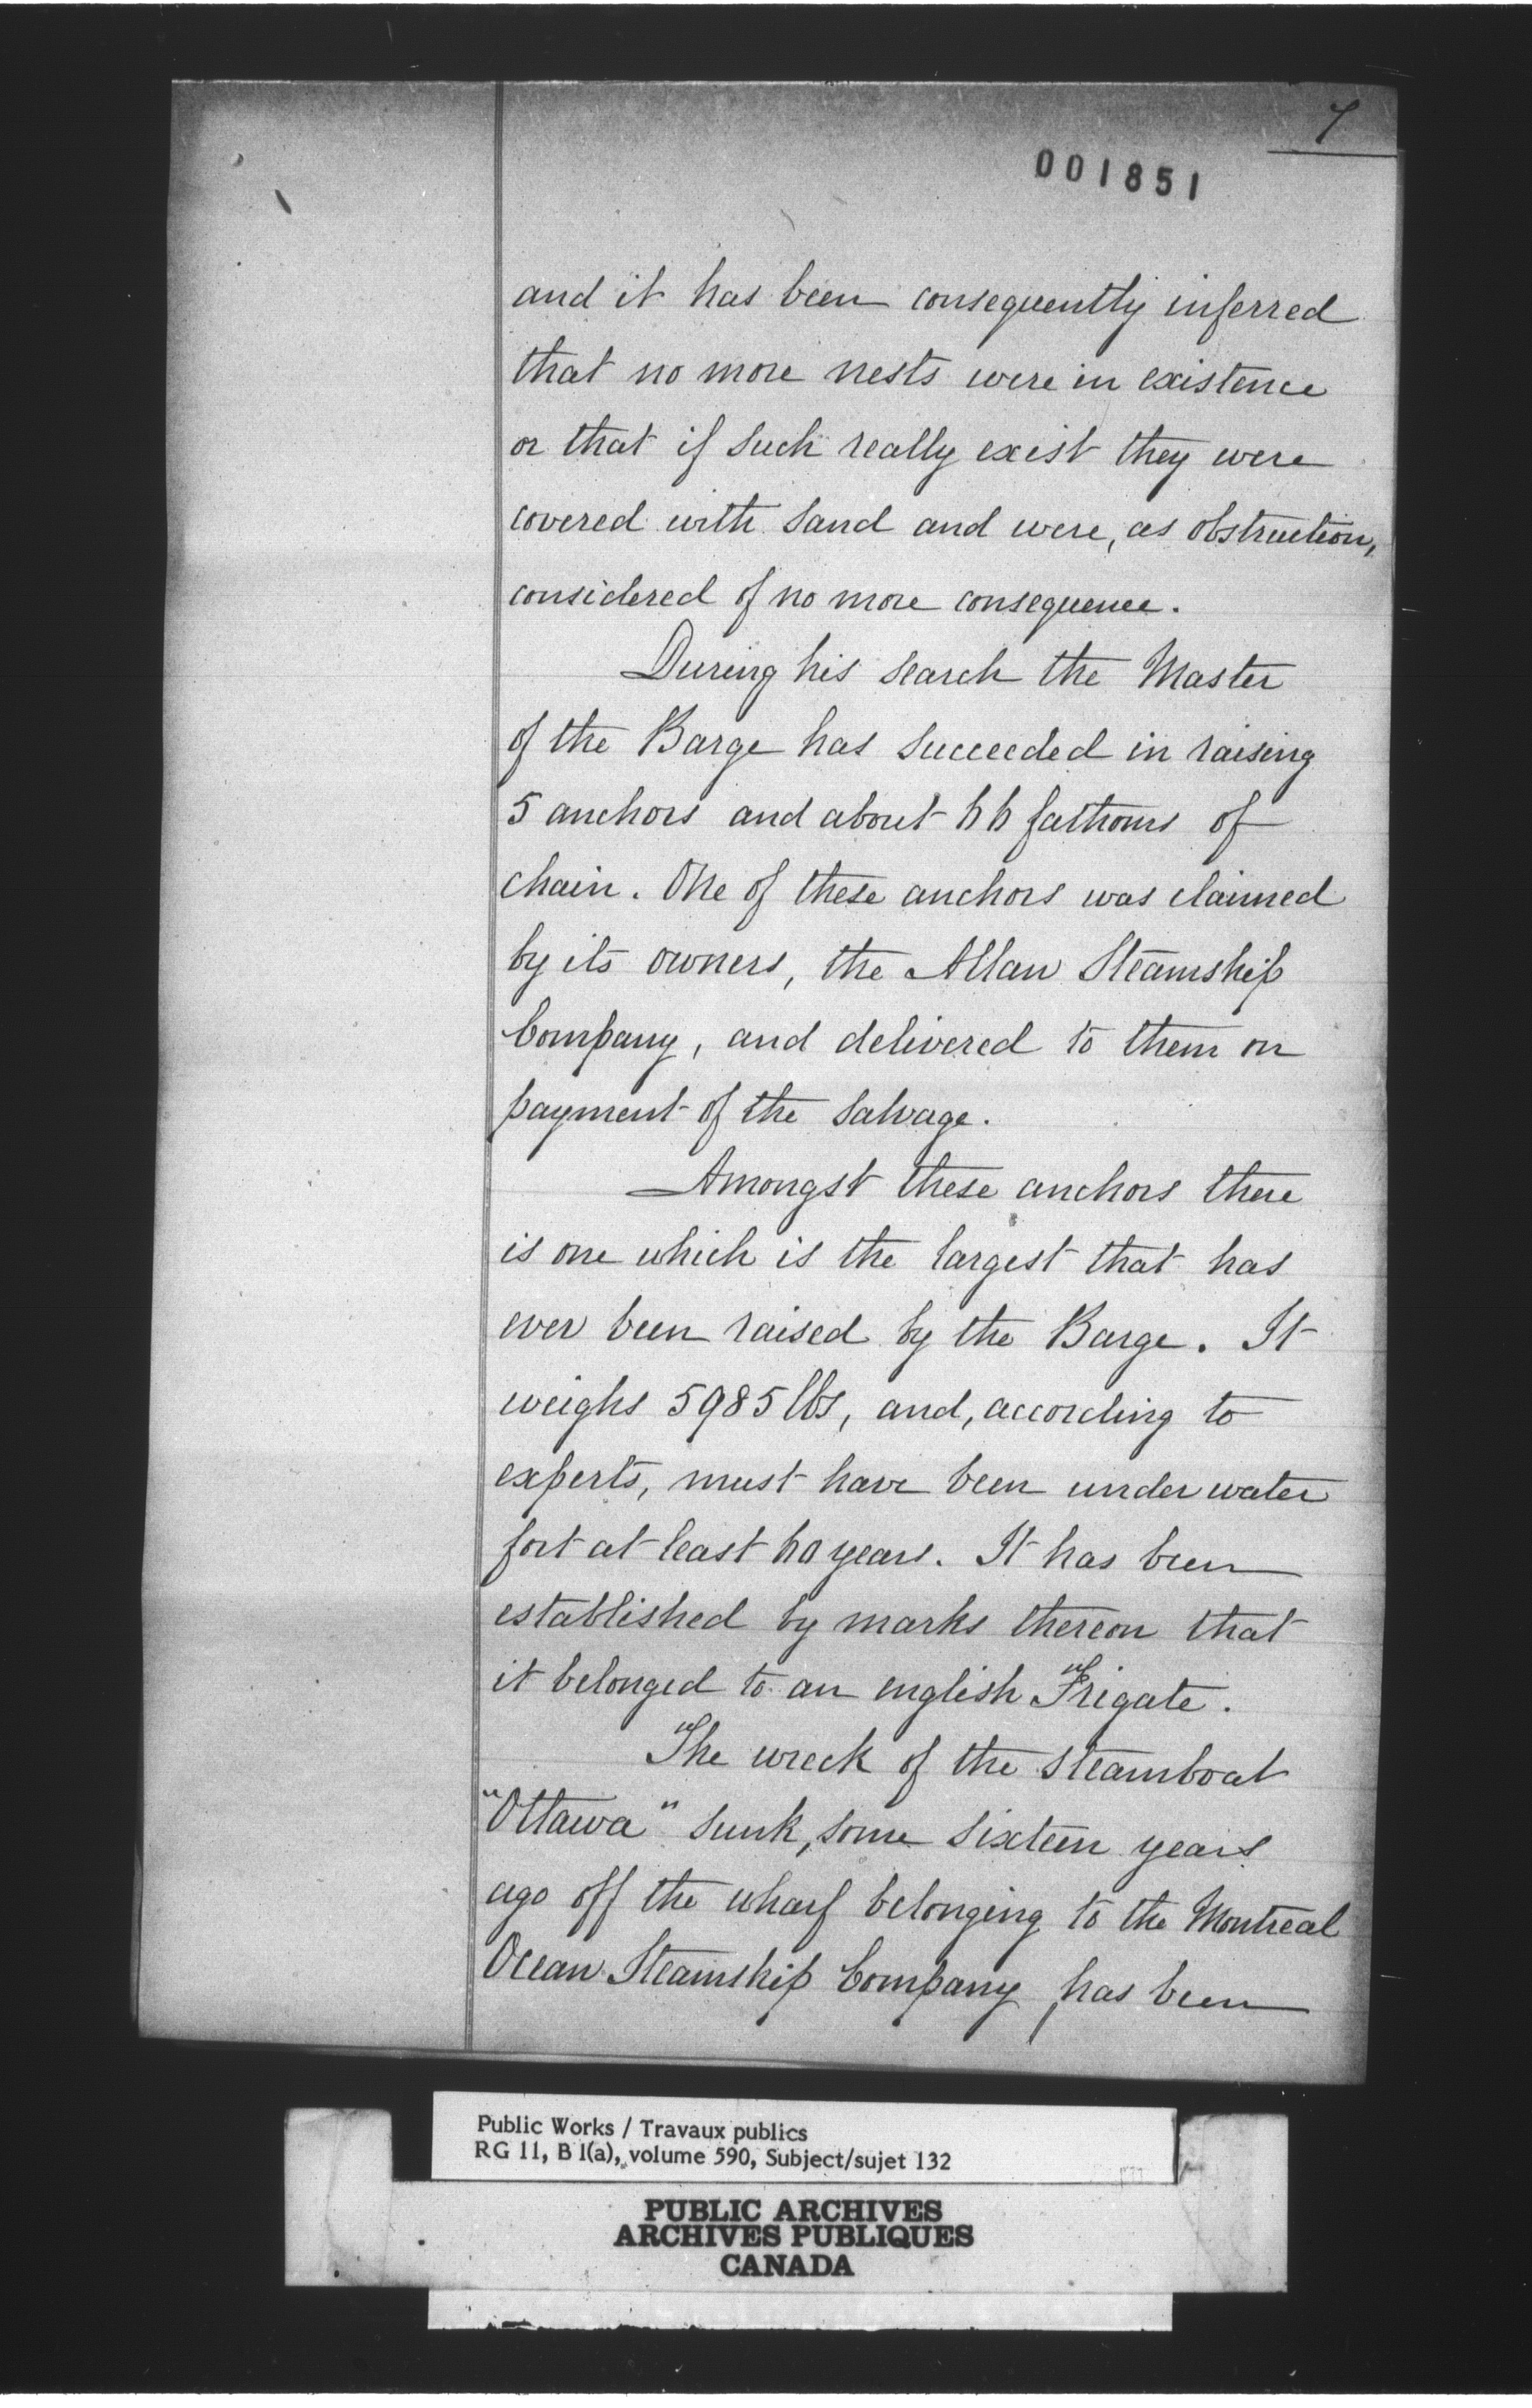 7
001851
and it has been consequently inferred
that no more nests were in existence
or that if such really exist they were
covered with sand and were, as obstruction,
considered of no more consequence.
During his search the Master
of the Barge has succeeded in raising
5 anchors and about 66 fathoms of
chain. One of these anchors was claimed
by its owners, the Allan Steamship
Company, and delivered to them on
payment of the salvage.
Amongst these anchors there
is one which is the largest that has
ever been raised by the Barge. It
weighs 5985 lbs, and, according to
experts, must have been under water
fort at least 60 years. It has been
established by marks thereon that
it belonged to an english Frigate.
The wreck of the steamboat
"Ottawa" sunk, some sixteen years
ago off the wharf belonging to the Montreal
Ocean Steamship Company, has been
Public Works / Travaux publics
RG 11, B 1(a), volume 590, Subject/sujet 132
PUBLIC ARCHIVES
ARCHIVES PUBLIQUES
CANADA